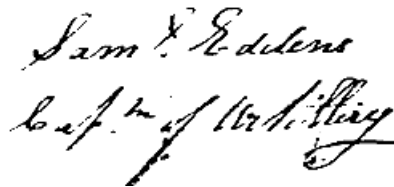 Sam.l Eddens
Cap.tn of Artillery